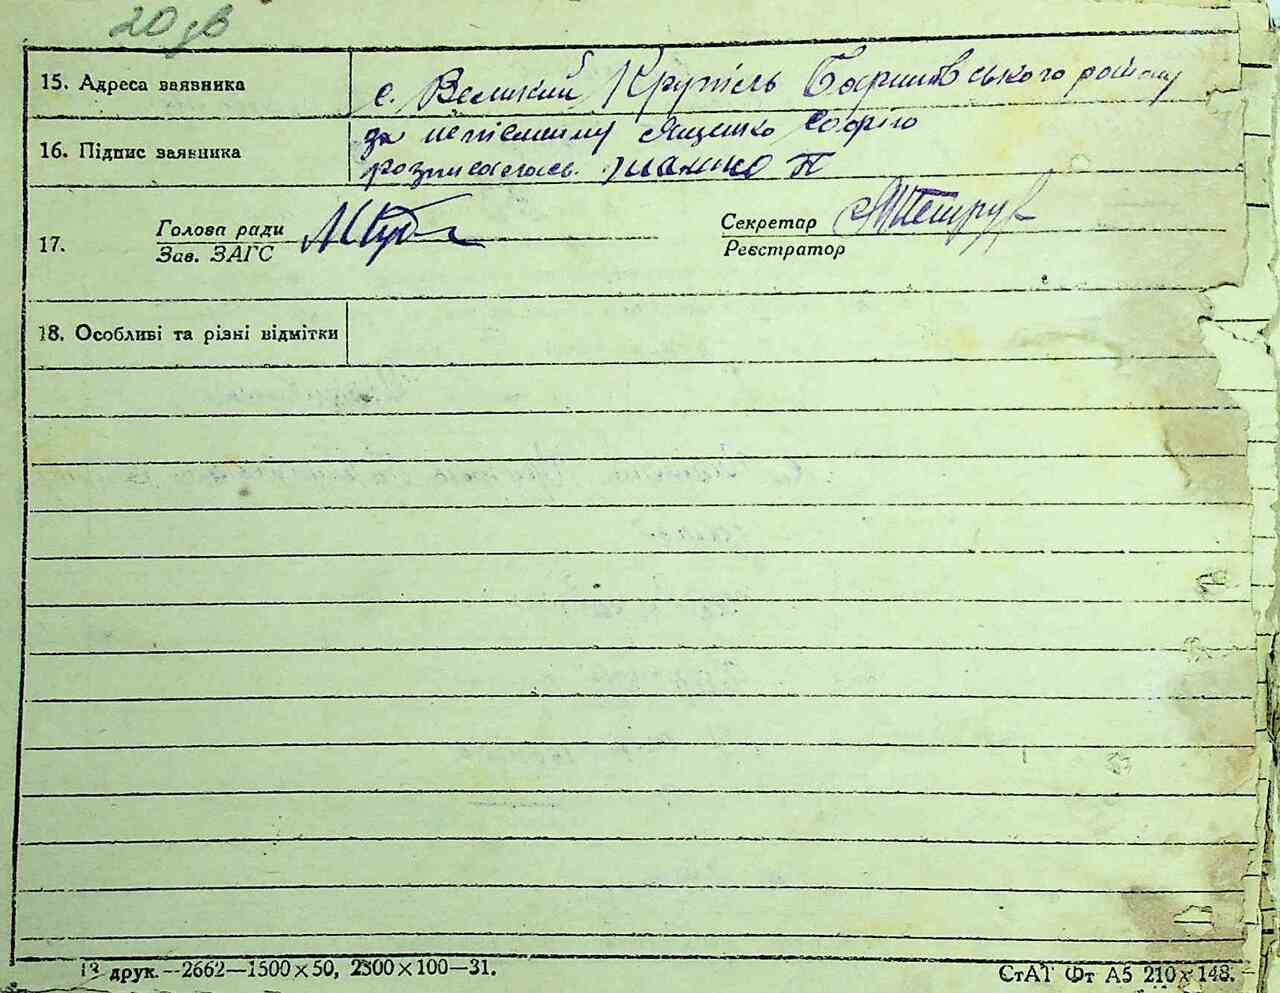 20 зв
15. Адреса заявника с. Великий Крупіль Баришівського району
16. Підпис заявника за неписьмену Ященко Софію
розписалась
17. Голова ради
Зав. ЗАГС
Секретар
Реєстратор
18. Особливі та різні відмітки
13 друк.—2662—1500×50, 2300×100—31.
СтАТ Фт А5 210×148.